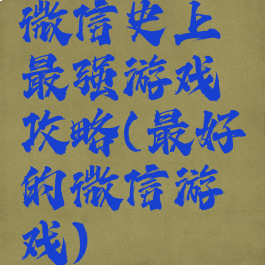 微信史上
最强游戏
攻略(最好
的微信游
戏)